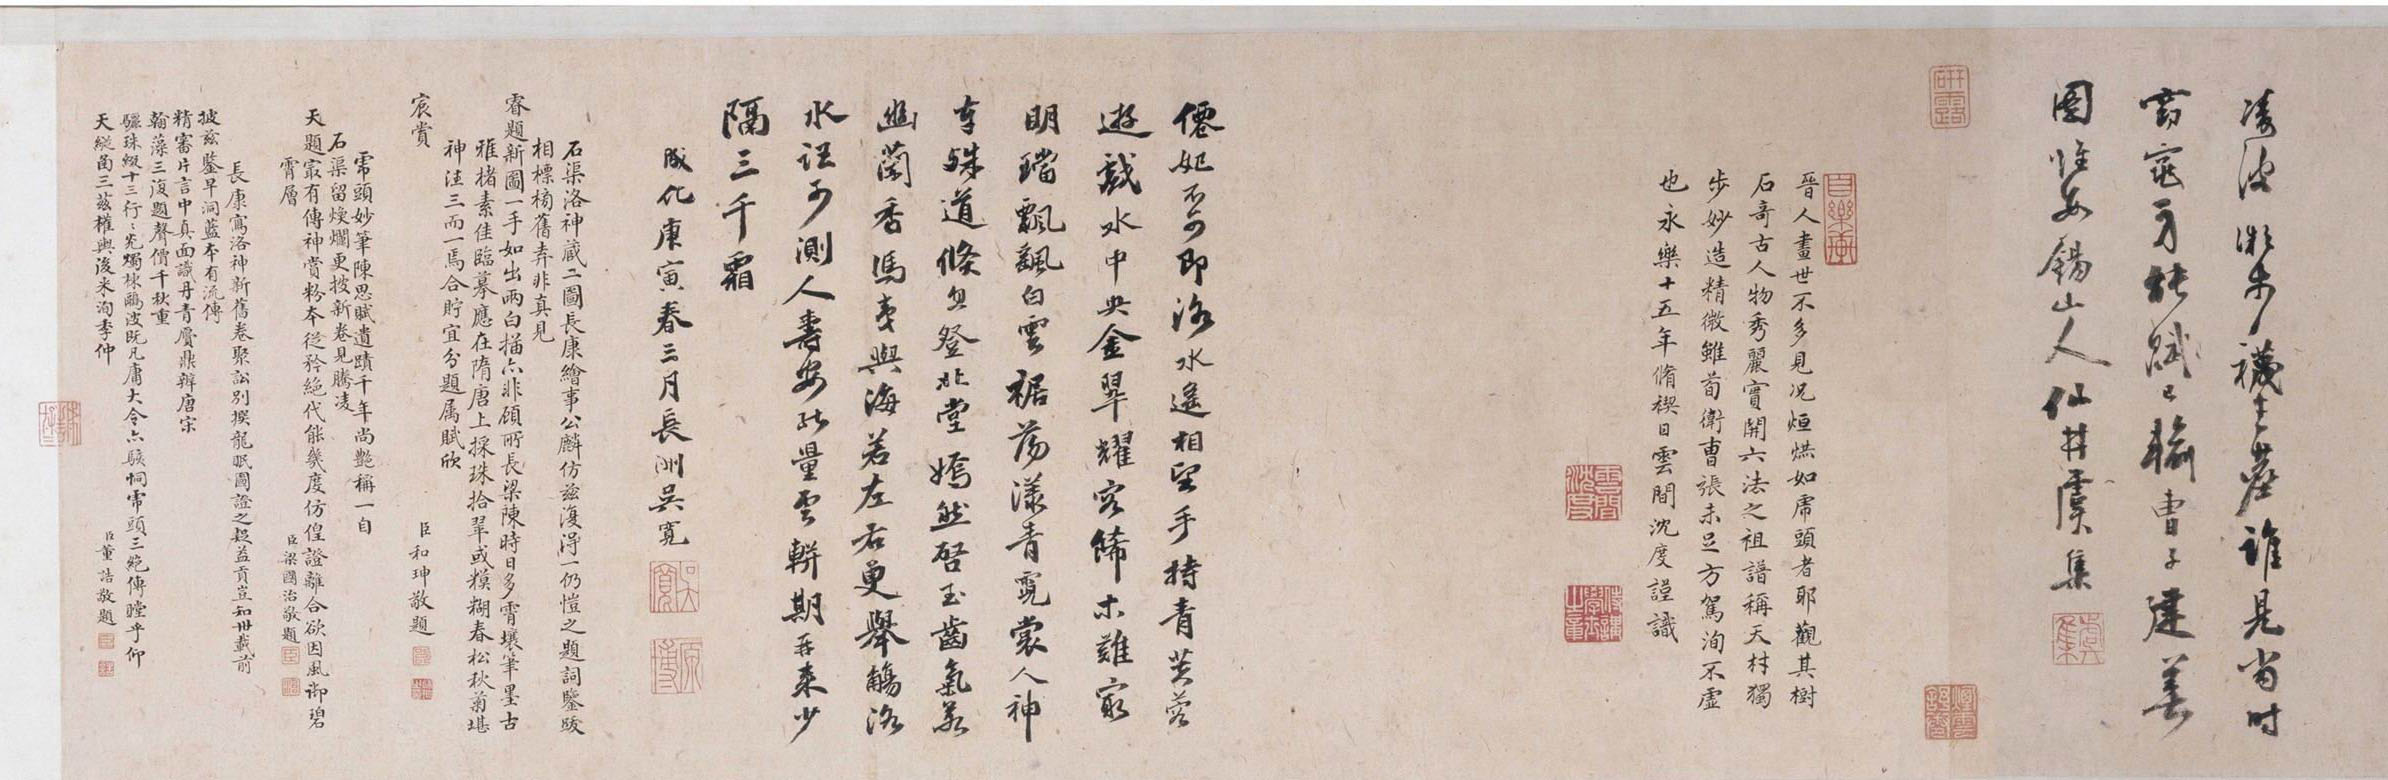 凌波微步襪生塵誰見當時
窈窕身能賦已輸曹子建善
圖惟數錫山人仙井虞集
晉人畫世不多見況烜烘如虎頭者耶觀其樹
石奇古人物秀麗實開六法之祖譜稱天材獨
步妙造精微雖荀衛曹張未足方駕洵不虛
也永樂十五年脩禊日雲間沈度謹識
僊妃不可即洛水遙相望手持青芙蓉
遊戲水中央金翠耀容飾小雖寂
明璫飄颻白雲裾蕩漾青霓裳人神
有殊道倏忽登北堂嫣然啓玉齒氣若
幽蘭香馮夷與海若左右更舉觴洛
水詎可測人壽安能量雲軿期再來少
隔三千霜
成化庚寅春三月長洲吳寬
石渠洛神藏二圖長康繪事公麟仿茲復得一仍愷之題詞鑒跋
相標榜舊弆非真見
睿題新圖一手如出兩白描亦非顧所長梁陳時日多霄壤筆墨古
雅楮素佳臨摹應在隋唐上採珠拾翠或糢糊春松秋菊堪
神注三而一焉合貯宜分題属賦欣
宸賞
臣和珅敬題
帋頭妙筆陳思賦遺蹟千年尚艷稱一自
石渠留煥爛更披新卷見騰凌
天題寂有傳神賞粉本從矜絕代能幾度仿偟證離合欲因風御碧
霄層
臣梁國治敬題
長康寫洛神新舊卷聚訟別撰龍眠圖證之超益貢豈知卅載前
披茲鑒早洞藍本有流傳
精審片言中真面識丹青贗鼎辨唐宋
翰藻三復題聲價千秋重
驪珠綴十三行〻光燭棟鷗波既凡庸大令亦駭恫帋頭三絕傳瞠乎仰
天縱畵三茲權輿後來洵季仲
臣董誥敬題